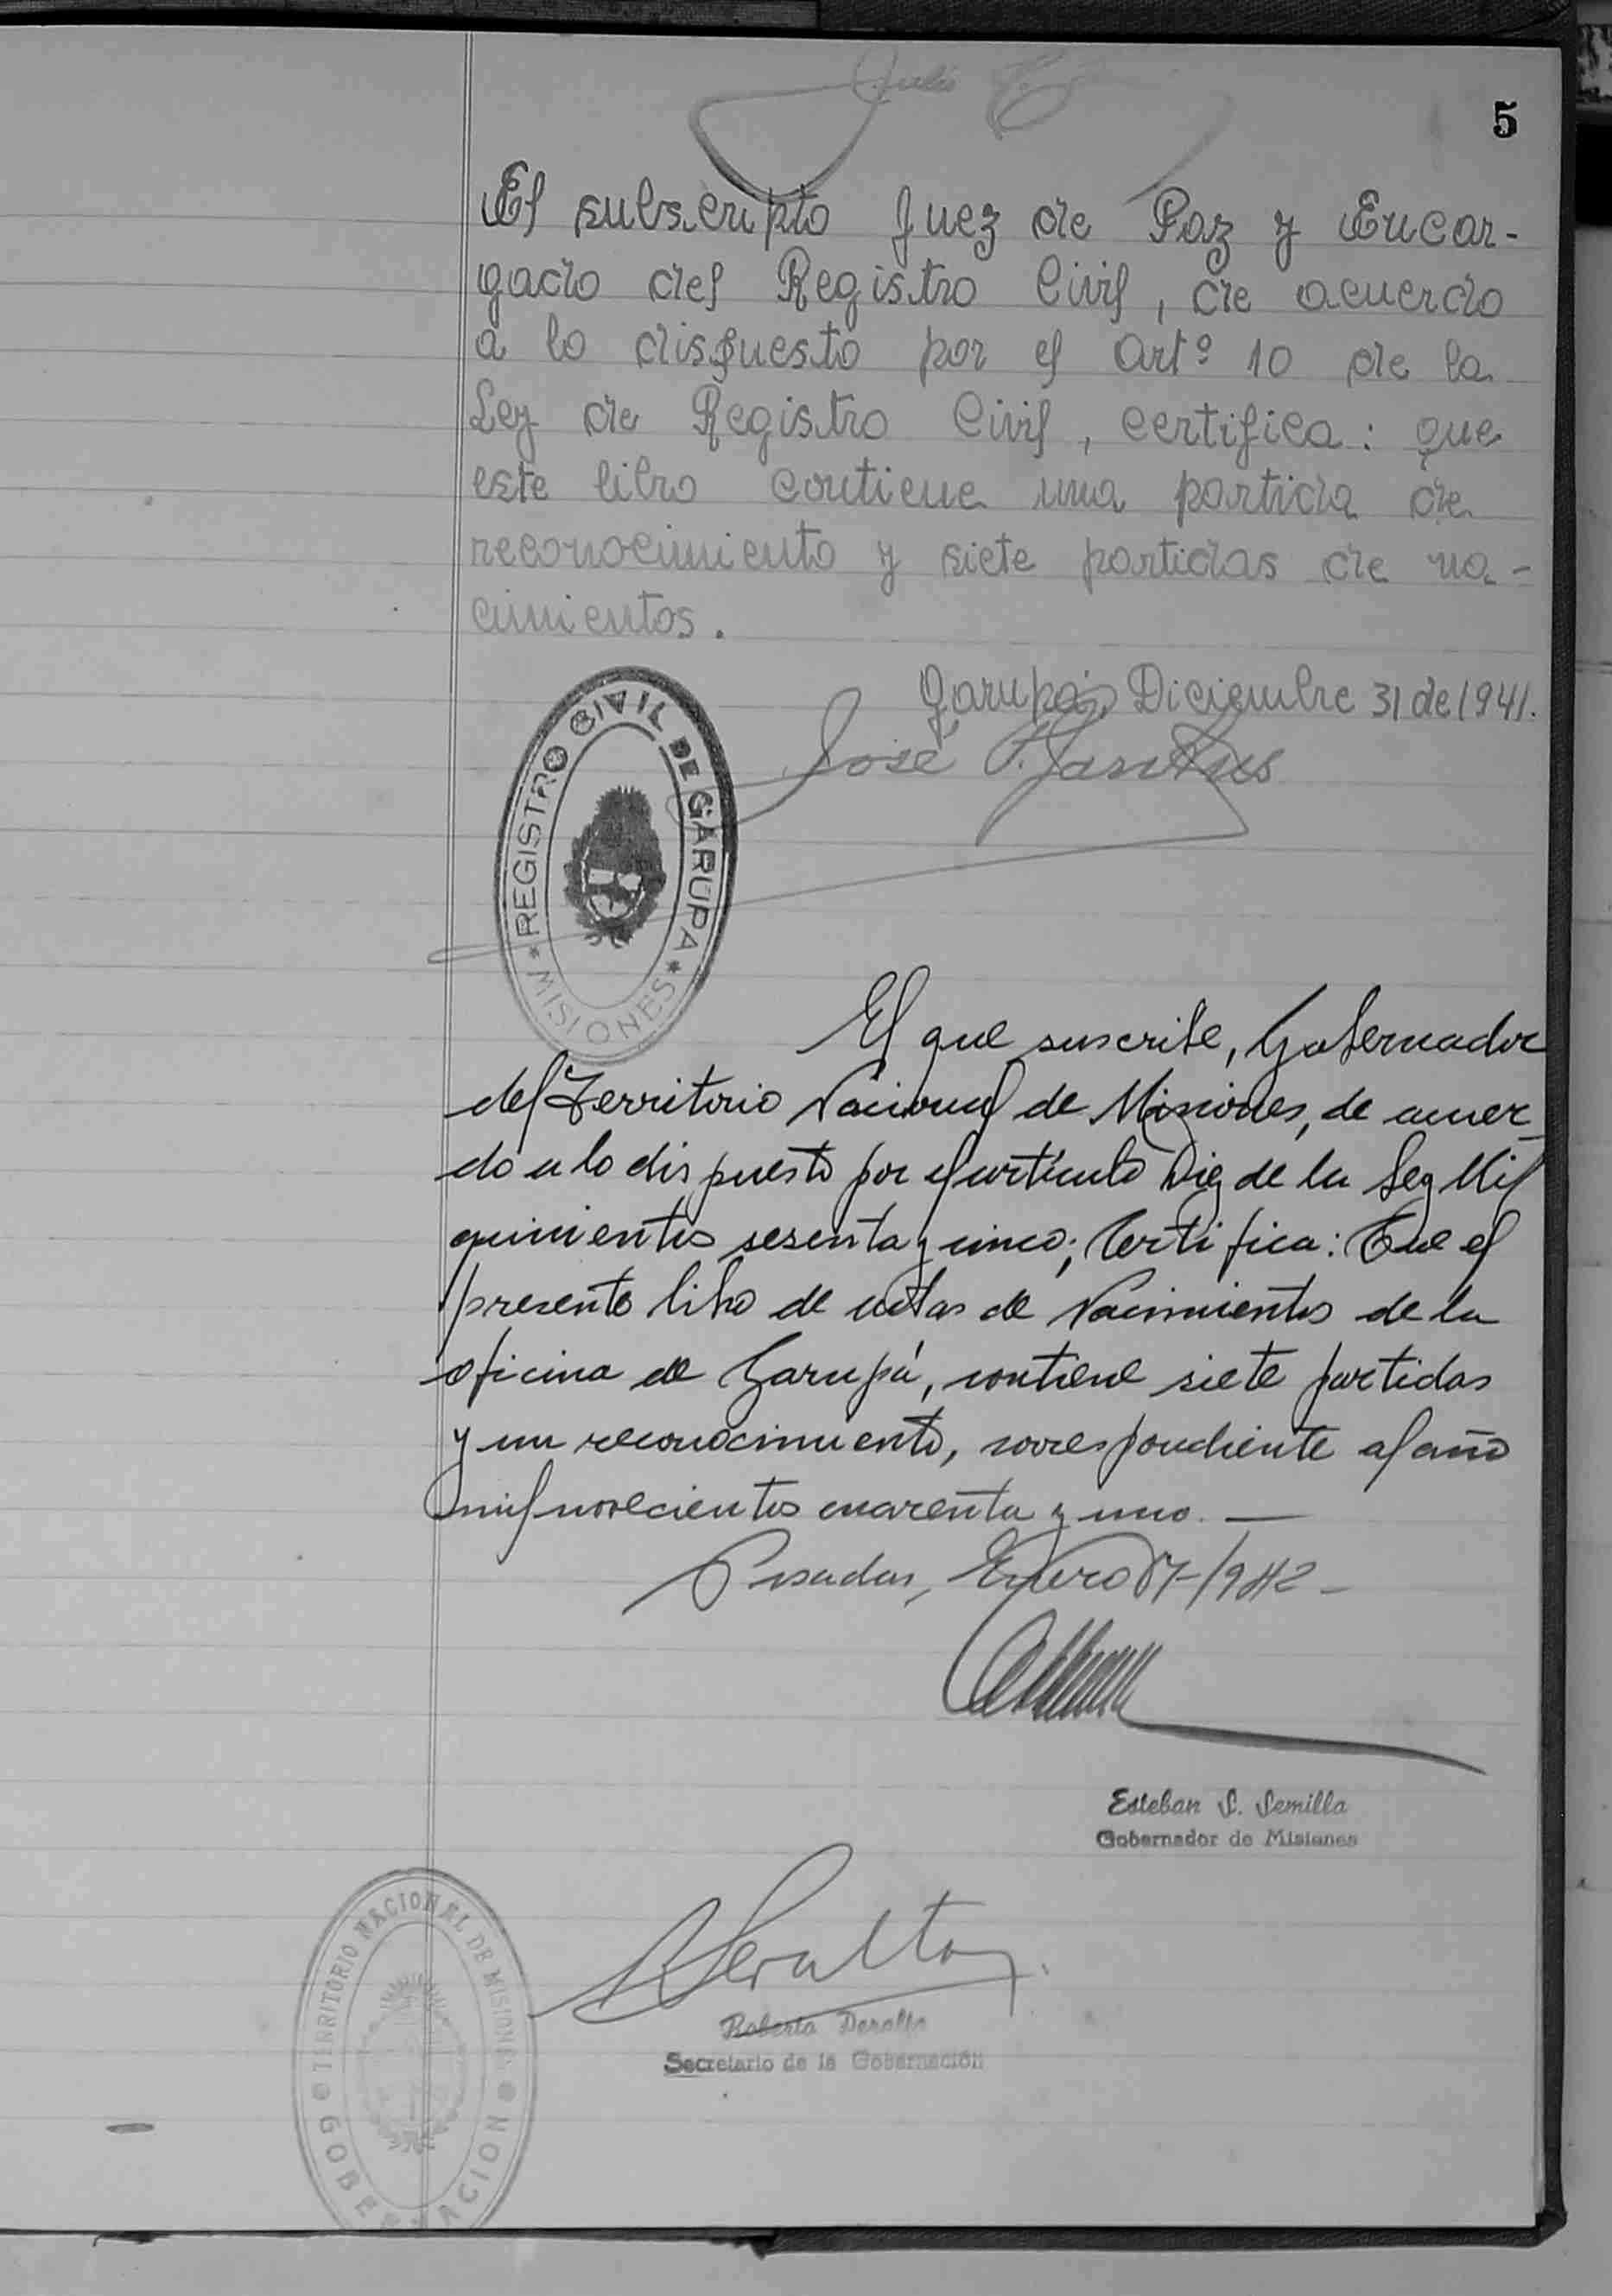 5
El subscripto Juez de Paz y Encar-
gado del Registro Civil, de acuerdo
a lo dispuesto por el Artº 10 de la
Ley de Registro Civil, certifica: que
este libro contiene una partida de
reconocimiento y siete partidas de na-
cimientos.
Garupá, Diciembre 31 de 1941.
José
REGISTRO CIVIL DE GARUPA
* MISIONES *
El que suscribe, Gobernador
del Territorio Nacional de Misiones, de acuer
do a lo dispuesto por el artículo Diez de la Ley Mil
quinientos sesenta y cinco; Certifica: Que el
presente libro de actas de Nacimientos de la
oficina de Garupá, contiene siete partidas
y un reconocimiento, correspondiente al año
mil novecientos cuarenta y uno. —
Posadas, Enero 17-1942-
Esteban S. Semilla
Gobernador de Misiones
RPeralta
Roberto Peralta
Secretario de la Gobernación
TERRITORIO NACIONAL DE MISIONES
GOBERNACION